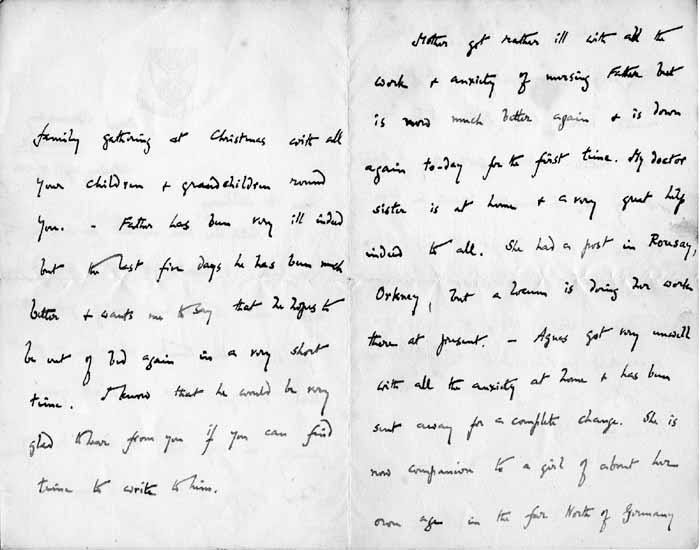 family gathering at Christmas with all
your children + grandchildren round
you. - Father has been very ill indeed
but the last five days he has been much
better + wants me to say that he hopes to
be out of bed again in a very short
time. I know that he would be very
glad to hear from you if you can find
time to write to him.
Mother got rather ill with all the
work + anxiety of nursing Father but
is now much better again + is down
again to-day for the first time. My doctor
sister is at home + a very great help
indeed to all. She had a post in Rousay,
Orkney, but a locum is doing her work
there at present. - Agnes got very unwell
with all the anxiety at home + has been
sent away for a complete change. She is
now companion to a girl of about her
own age in the far North of Germany